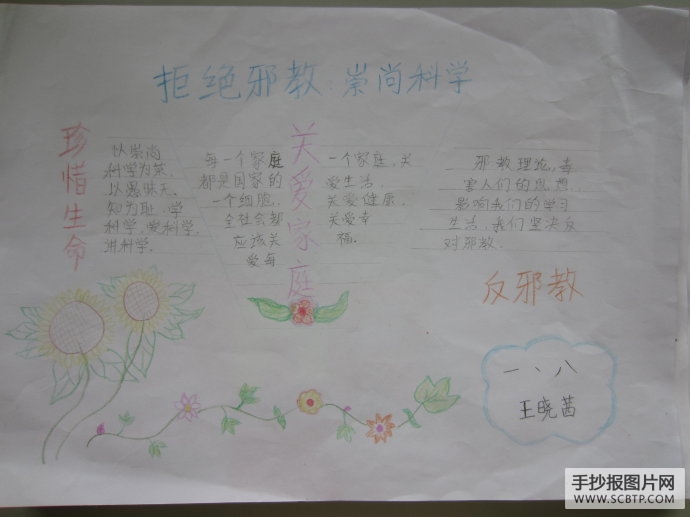 拒绝邪教 崇尚科学
珍惜生命
以崇尚
科学为荣,
以愚昧无
知为耻.学
科学,爱科学,
讲科学.
每一个家庭
都是国家的
一个细胞,
全社会都
应该关
爱每
关爱家庭
一个家庭,关
爱生活,
关爱健康,
关爱幸
福.
邪教理论,毒
害人们的思想,
影响我们的学习
生活,我们坚决反
对邪教.
反邪教
一、八
王晓茜
手抄报图片网
WWW.SCBTP.COM